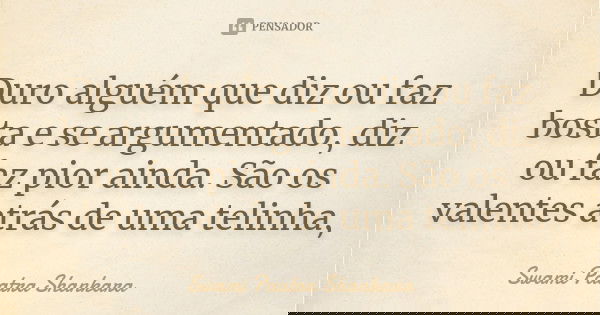 PENSADOR
Duro alguém que diz ou faz
bosta e se argumentado, diz
ou faz pior ainda. São os
valentes atrás de uma telinha,
Swami Paatra Shankara